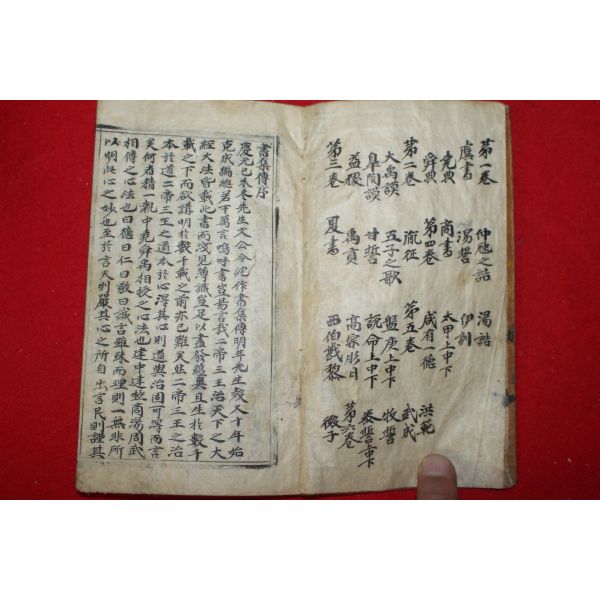 第一卷 仲虺之誥 湯誥
虞書 湯誓 伊訓
堯典 商書 太甲上中下
舜典 第四卷 咸有一德 洪範
第二卷 胤征 第五卷 武成
大禹謨 五子之歌 盤庚上中下 牧誓
皐陶謨 甘誓 說命上中下 泰誓上中下
益稷 禹貢 高宗肜日 第六卷
第三卷 夏書 西伯戡黎 微子
書集傳序
慶元己未冬先生文公令沈作書集傳明年先生歿又十年始
克成編總若干萬言嗚呼書豈易言哉二帝三王治天下之大
經大法皆載此書而淺見薄識豈足以盡發蘊奧且生於數千
載之下而欲講明於數千載之前亦已難矣然二帝三王之治
本於道二帝三王之道本於心得其心則道與治固可得而言
矣何者精一執中堯舜禹相授之心法也建中建極商湯周武
相傳之心法也曰德曰仁曰敬曰誠言雖殊而理則一無非所
以明此心之妙也至於言天則嚴其心之所自出言民則謹其